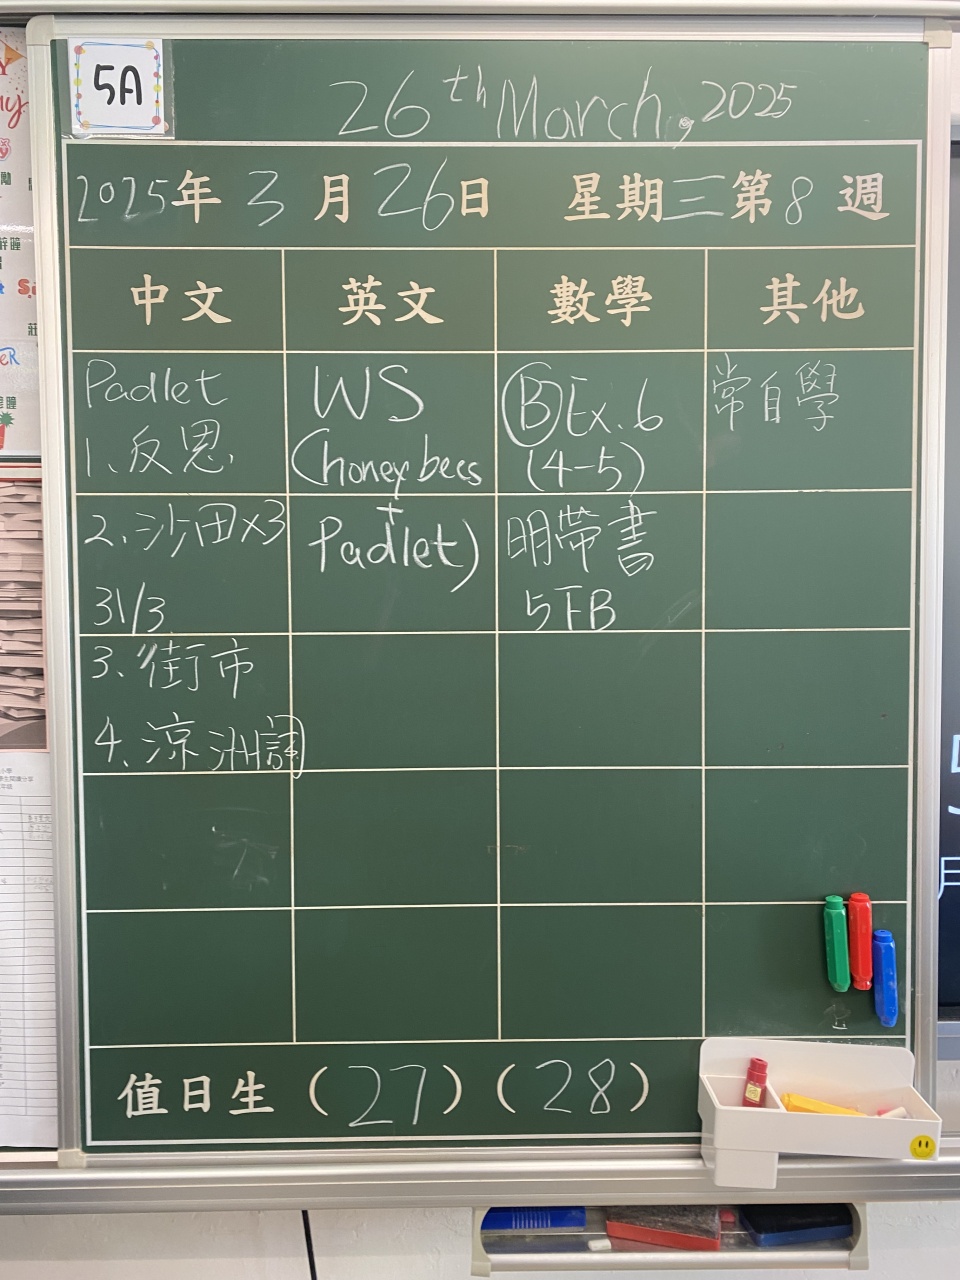 5A
26th March, 2025
2025年 3 月 26日 星期三第 8 週
中文 英文 數學 其他
Padlet
1、反恩
2、沙田x3
31/3
3、街市
4、涼洲詞
WS
(honey bees
+
Padlet)
Ⓑ Ex. 6
(4-5)
明帶書
5FB
常自學
值日生 (27) (28)